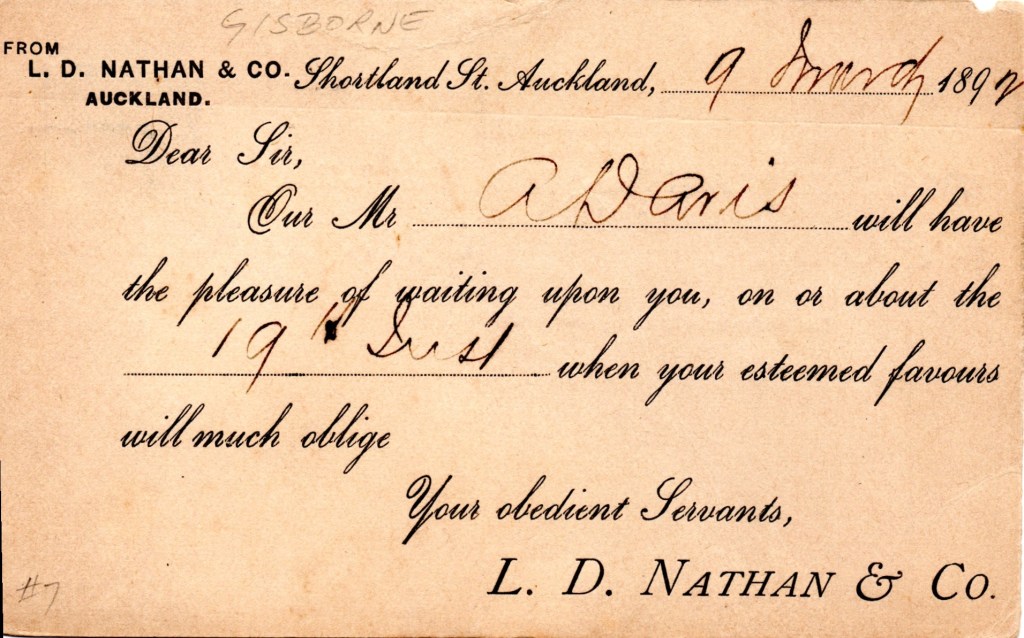 GISBORNE
FROM
L. D. NATHAN & CO. Shortland St. Auckland, 9 March 1892
AUCKLAND.
Dear Sir,
Our Mr A Davis will have
the pleasure of waiting upon you, on or about the
19th Inst when your esteemed favours
will much oblige
Your obedient Servants,
L. D. NATHAN & Co.
#7